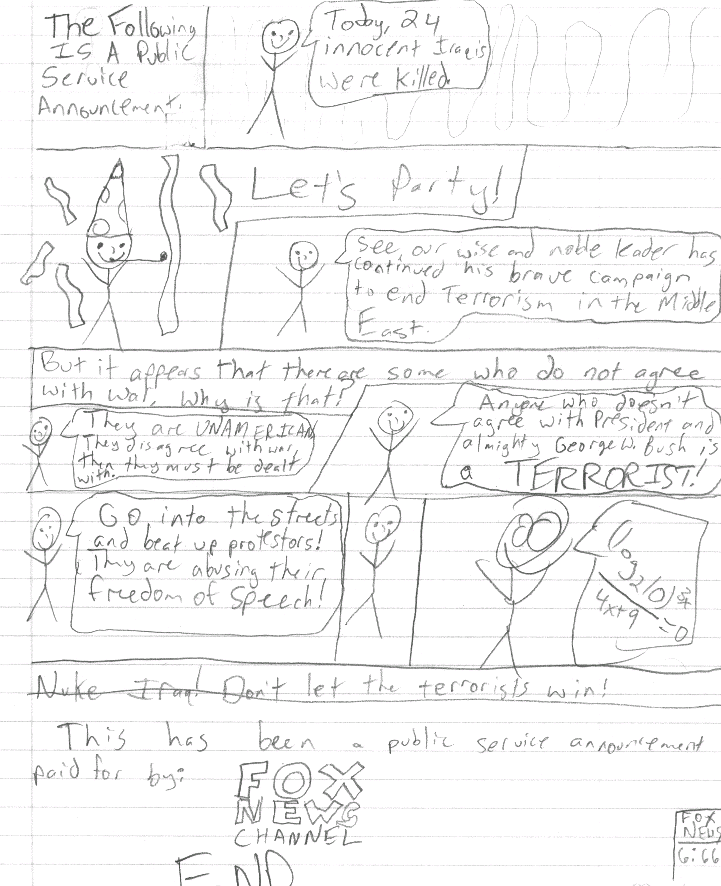 The Following
IS A Public
Service
Announcement.
Today, 24
innocent Iraqis
were killed.
Let's Party!
See our wise and noble leader has
continued his brave campaign
to end Terrorism in the Middle
East.
But it appears that there are some who do not agree
with war, why is that?
They are UNAMERICAN
They disagree with war
then they must be dealt
with.
Anyone who doesn't
agree with President and
almighty George W. Bush is
a TERRORIST!
Go into the streets
and beat up protestors!
They are abusing their
freedom of speech!
log2(0)
4x+9 =0
Nuke Iraq! Don't let the terrorists win!
This has been a public service announcement
paid for by:
FOX
NEWS
CHANNEL
END
FOX
NEWS
6:66